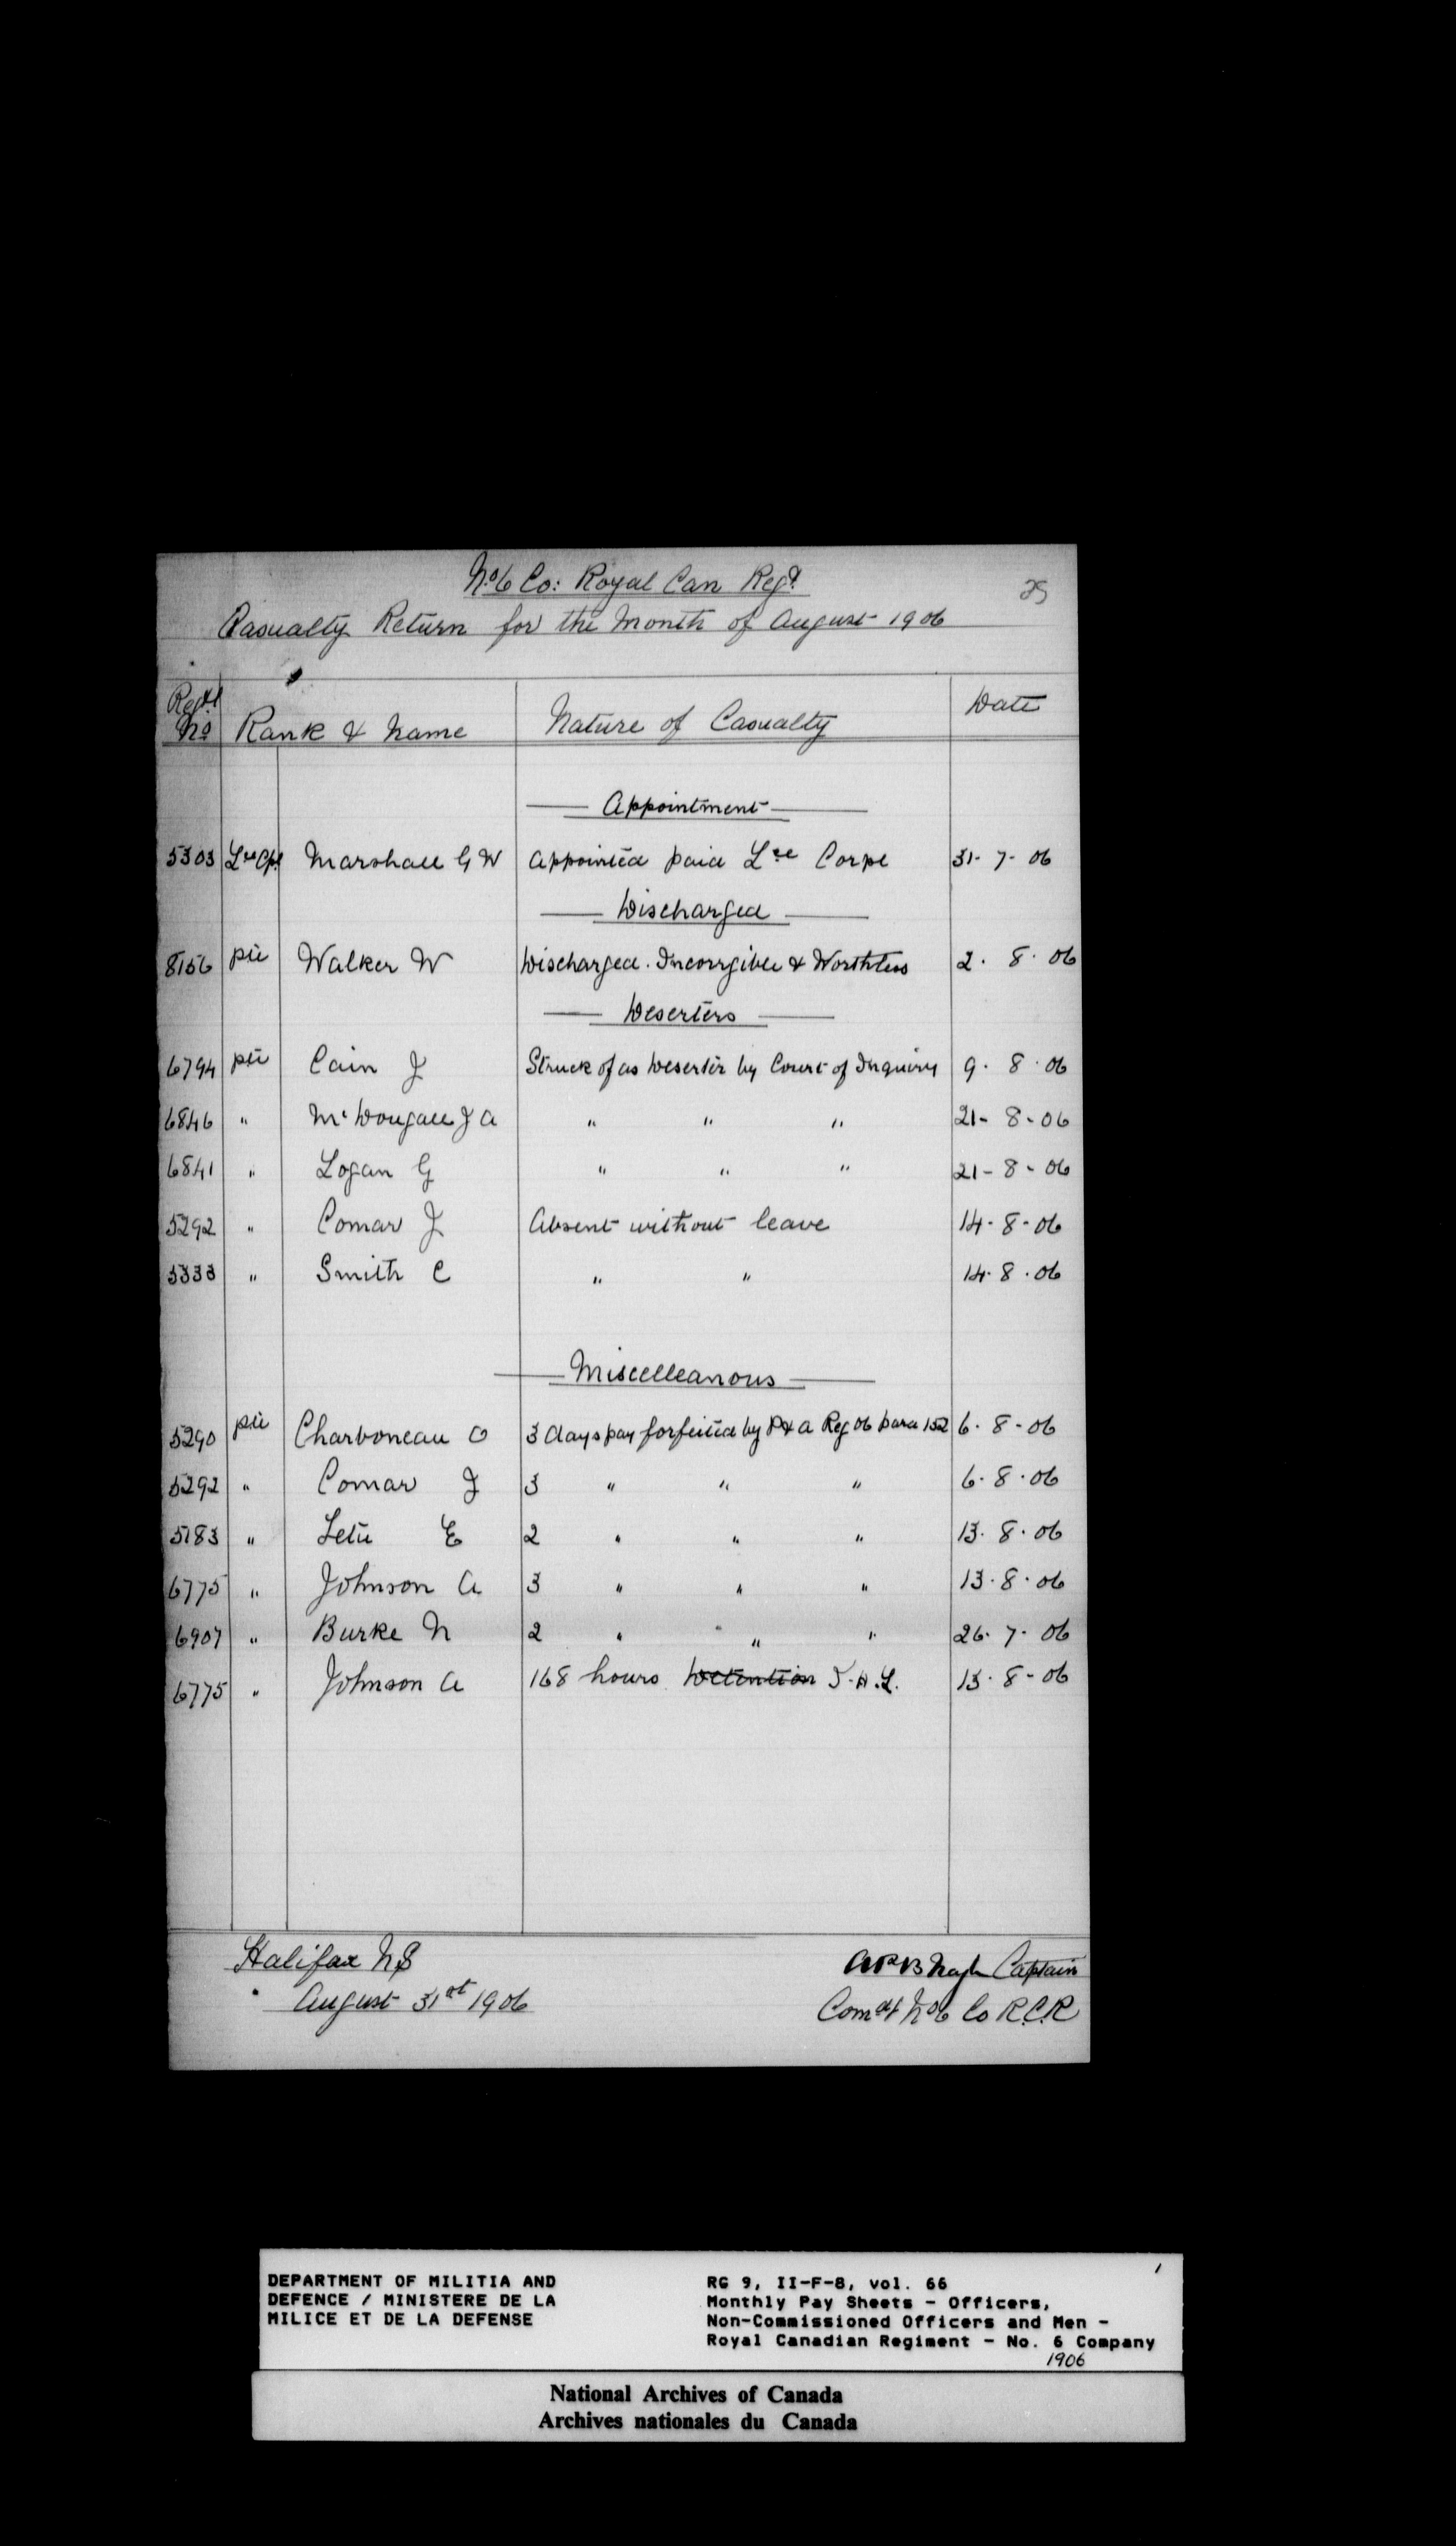 25
No 6 Co: Royal Can Regt
Casualty Return for the Month of August 1906
Regtl No Rank & Name Nature of Casualty Date
Appointment
5303 Lce Cpl Marshall G W Appointed paid Lce Corpl 31-7-06
Discharged
8156 pte Walker W Discharged. Incorrgible & Worthless 2.8.06
Deserters
6794 pte Cain J Struck of as Deserter by Court of Inquiry 9.8.06
6846 " McDougall J A " " " 21-8-06
6841 " Logan G " " " 21-8-06
5292 " Comar J Absent without leave 14-8-06
5333 " Smith C " " 14.8.06
Miscelleanous
5290 pte Charboneau O 3 days pay forfeited by P & A Reg 06 para 152 6-8-06
5292 " Comar J 3 " " " 6.8.06
5183 " Letie E 2 " " " 13.8.06
6775 " Johnson A 3 " " " 13.8.06
6907 " Burke N 2 " " " 26.7.06
6775 " Johnson A 168 hours Detention I.H.L. 13.8-06
Halifax N S
August 31st 1906
Captain
Comdt No 6 Co R.C.R
DEPARTMENT OF MILITIA AND
DEFENCE / MINISTERE DE LA
MILICE ET DE LA DEFENSE
1
RG 9, II-F-8, vol. 66
Monthly Pay Sheets - Officers,
Non-Commissioned Officers and Men -
Royal Canadian Regiment - No. 6 Company
1906
National Archives of Canada
Archives nationales du Canada